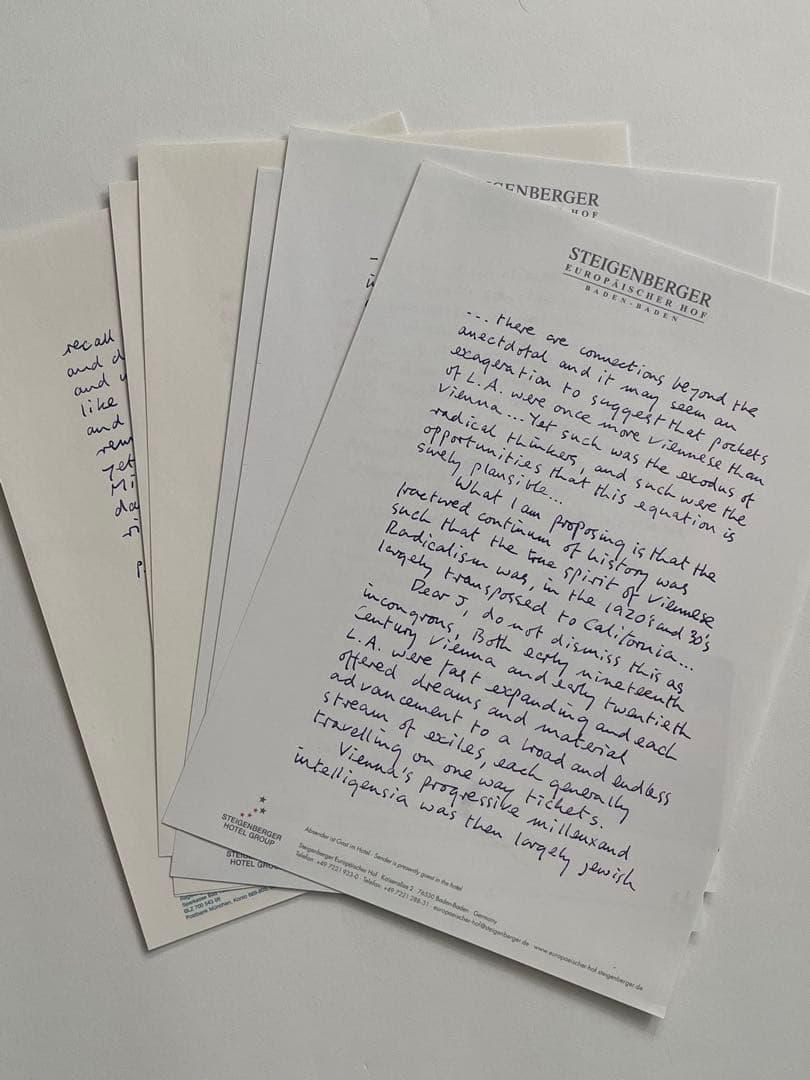 STEIGENBERGER
HOF
STEIGENBERGER
EUROPÄISCHER HOF
BADEN-BADEN
... there are connections beyond the
anectdotal and it may seem an
exageration to suggest that pockets
of L.A. were once more Viennese than
Vienna... Yet such was the exodus of
radical thinkers, and such were the
opportunities that this equation is
surely plausible...
What I am proposing is that the
fractured continuum of history was
such that the true spirit of Viennese
Radicalism was, in the 1920's and 30's
largely transpossed to California...
Dear J, do not dismiss this as
incongrous, Both early nineteenth
Century Vienna and early twentieth
L.A. were fast expanding and each
offered dreams and material
advancement to a broad and endless
stream of exiles, each generally
travelling on one way tickets.
Vienna's progressive millenx and
intelligensia was then largely jewish
STEIGENBERGER
HOTEL GROUP
Absender ist Gast im Hotel · Sender is presently guest in the hotel
Steigenberger Europäischer Hof · Kaiserallee 2 · 76530 Baden-Baden · Germany
Telefon: +49 7221 933-0 · Telefax: +49 7221 288-31 · europaeischer-hof@steigenberger.de · www.europaeischer-hof.steigenberger.de
STEIGEN
HOTEL GRO
recall
and d
and
like
and
rem
yet
Mi
da
ri
Sparkasse
BLZ 700 543 06
Postbank München, Konto